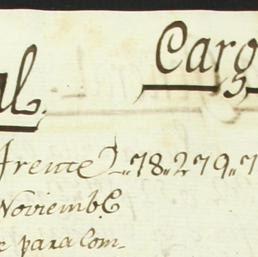 Carg
al.
frente 78.. 279.. 7
Noviembẽ
e para Com-